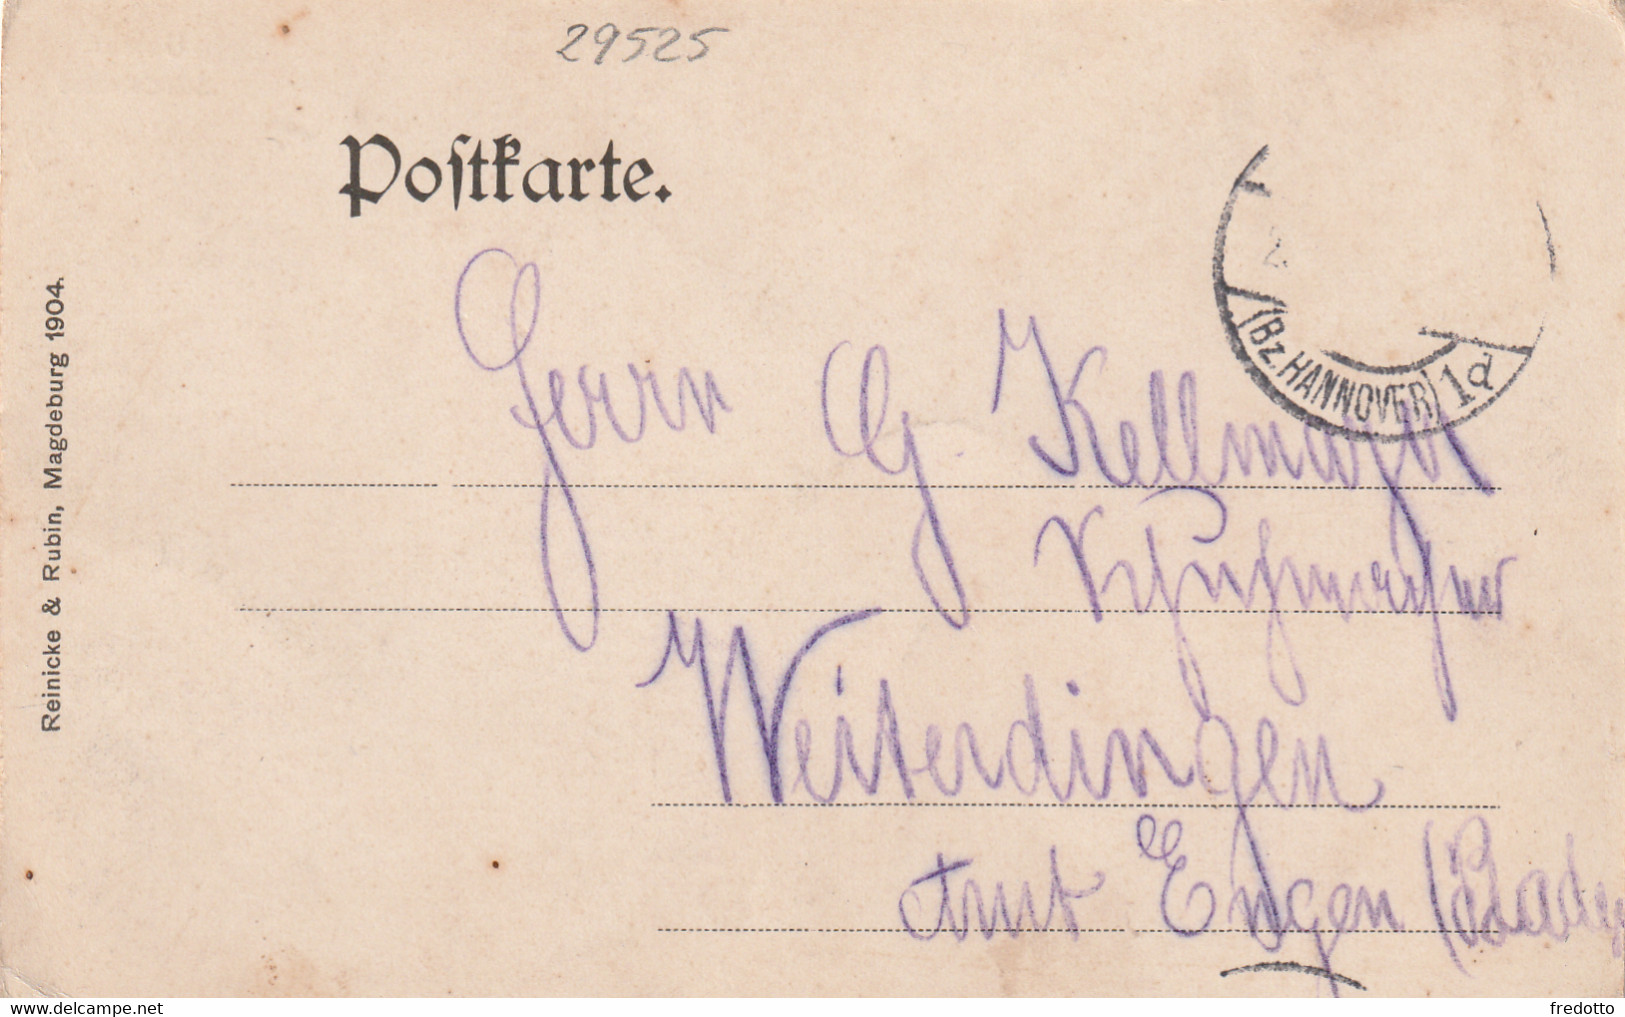 29525
Postkarte.
Reinicke & Rubin, Magdeburg 1904.
(Bz. HANNOVER) 1d
Herrn G Kellmayer
Weiterdingen
Amt Engen (Baden
www.delcampe.net
fredotto